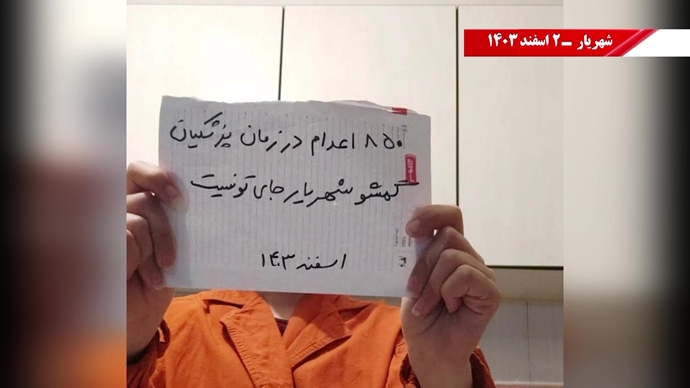 شهریار ــ ۲ اسفند ۱۴۰۳
۸۵۰ اعدام در زمان پزشکیان
گمشو شهریار جای تو نیست
اسفند ۱۴۰۳